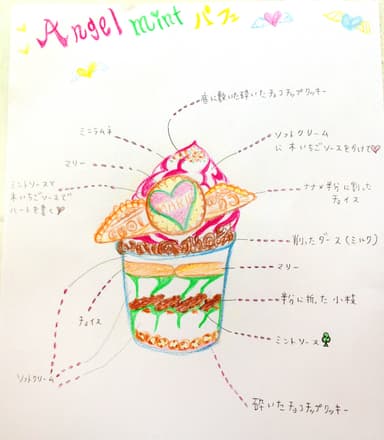 Angel mint パフェ
唇に敷いた砕いたチョコチップクッキー
ミニラムネ
ソフトクリーム
に木いちごソースをかけて♡
マリー
ミントソースと
木いちごソースで
ハートを書く♡
ナナメ半分に割った
チョイス
MARIE
削ったダース(ミルク)
マリー
半分に折った小枝
チョイス
ミントソース
ソフトクリーム
砕いたチョコチップクッキー